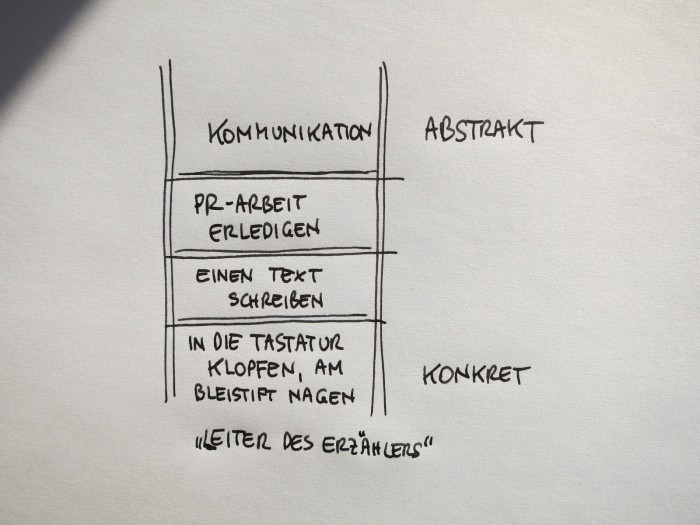 KOMMUNIKATION
ABSTRAKT
PR-ARBEIT
ERLEDIGEN
EINEN TEXT
SCHREIBEN
IN DIE TASTATUR
KLOPFEN, AM
BLEISTIFT NAGEN
KONKRET
"LEITER DES ERZÄHLERS"